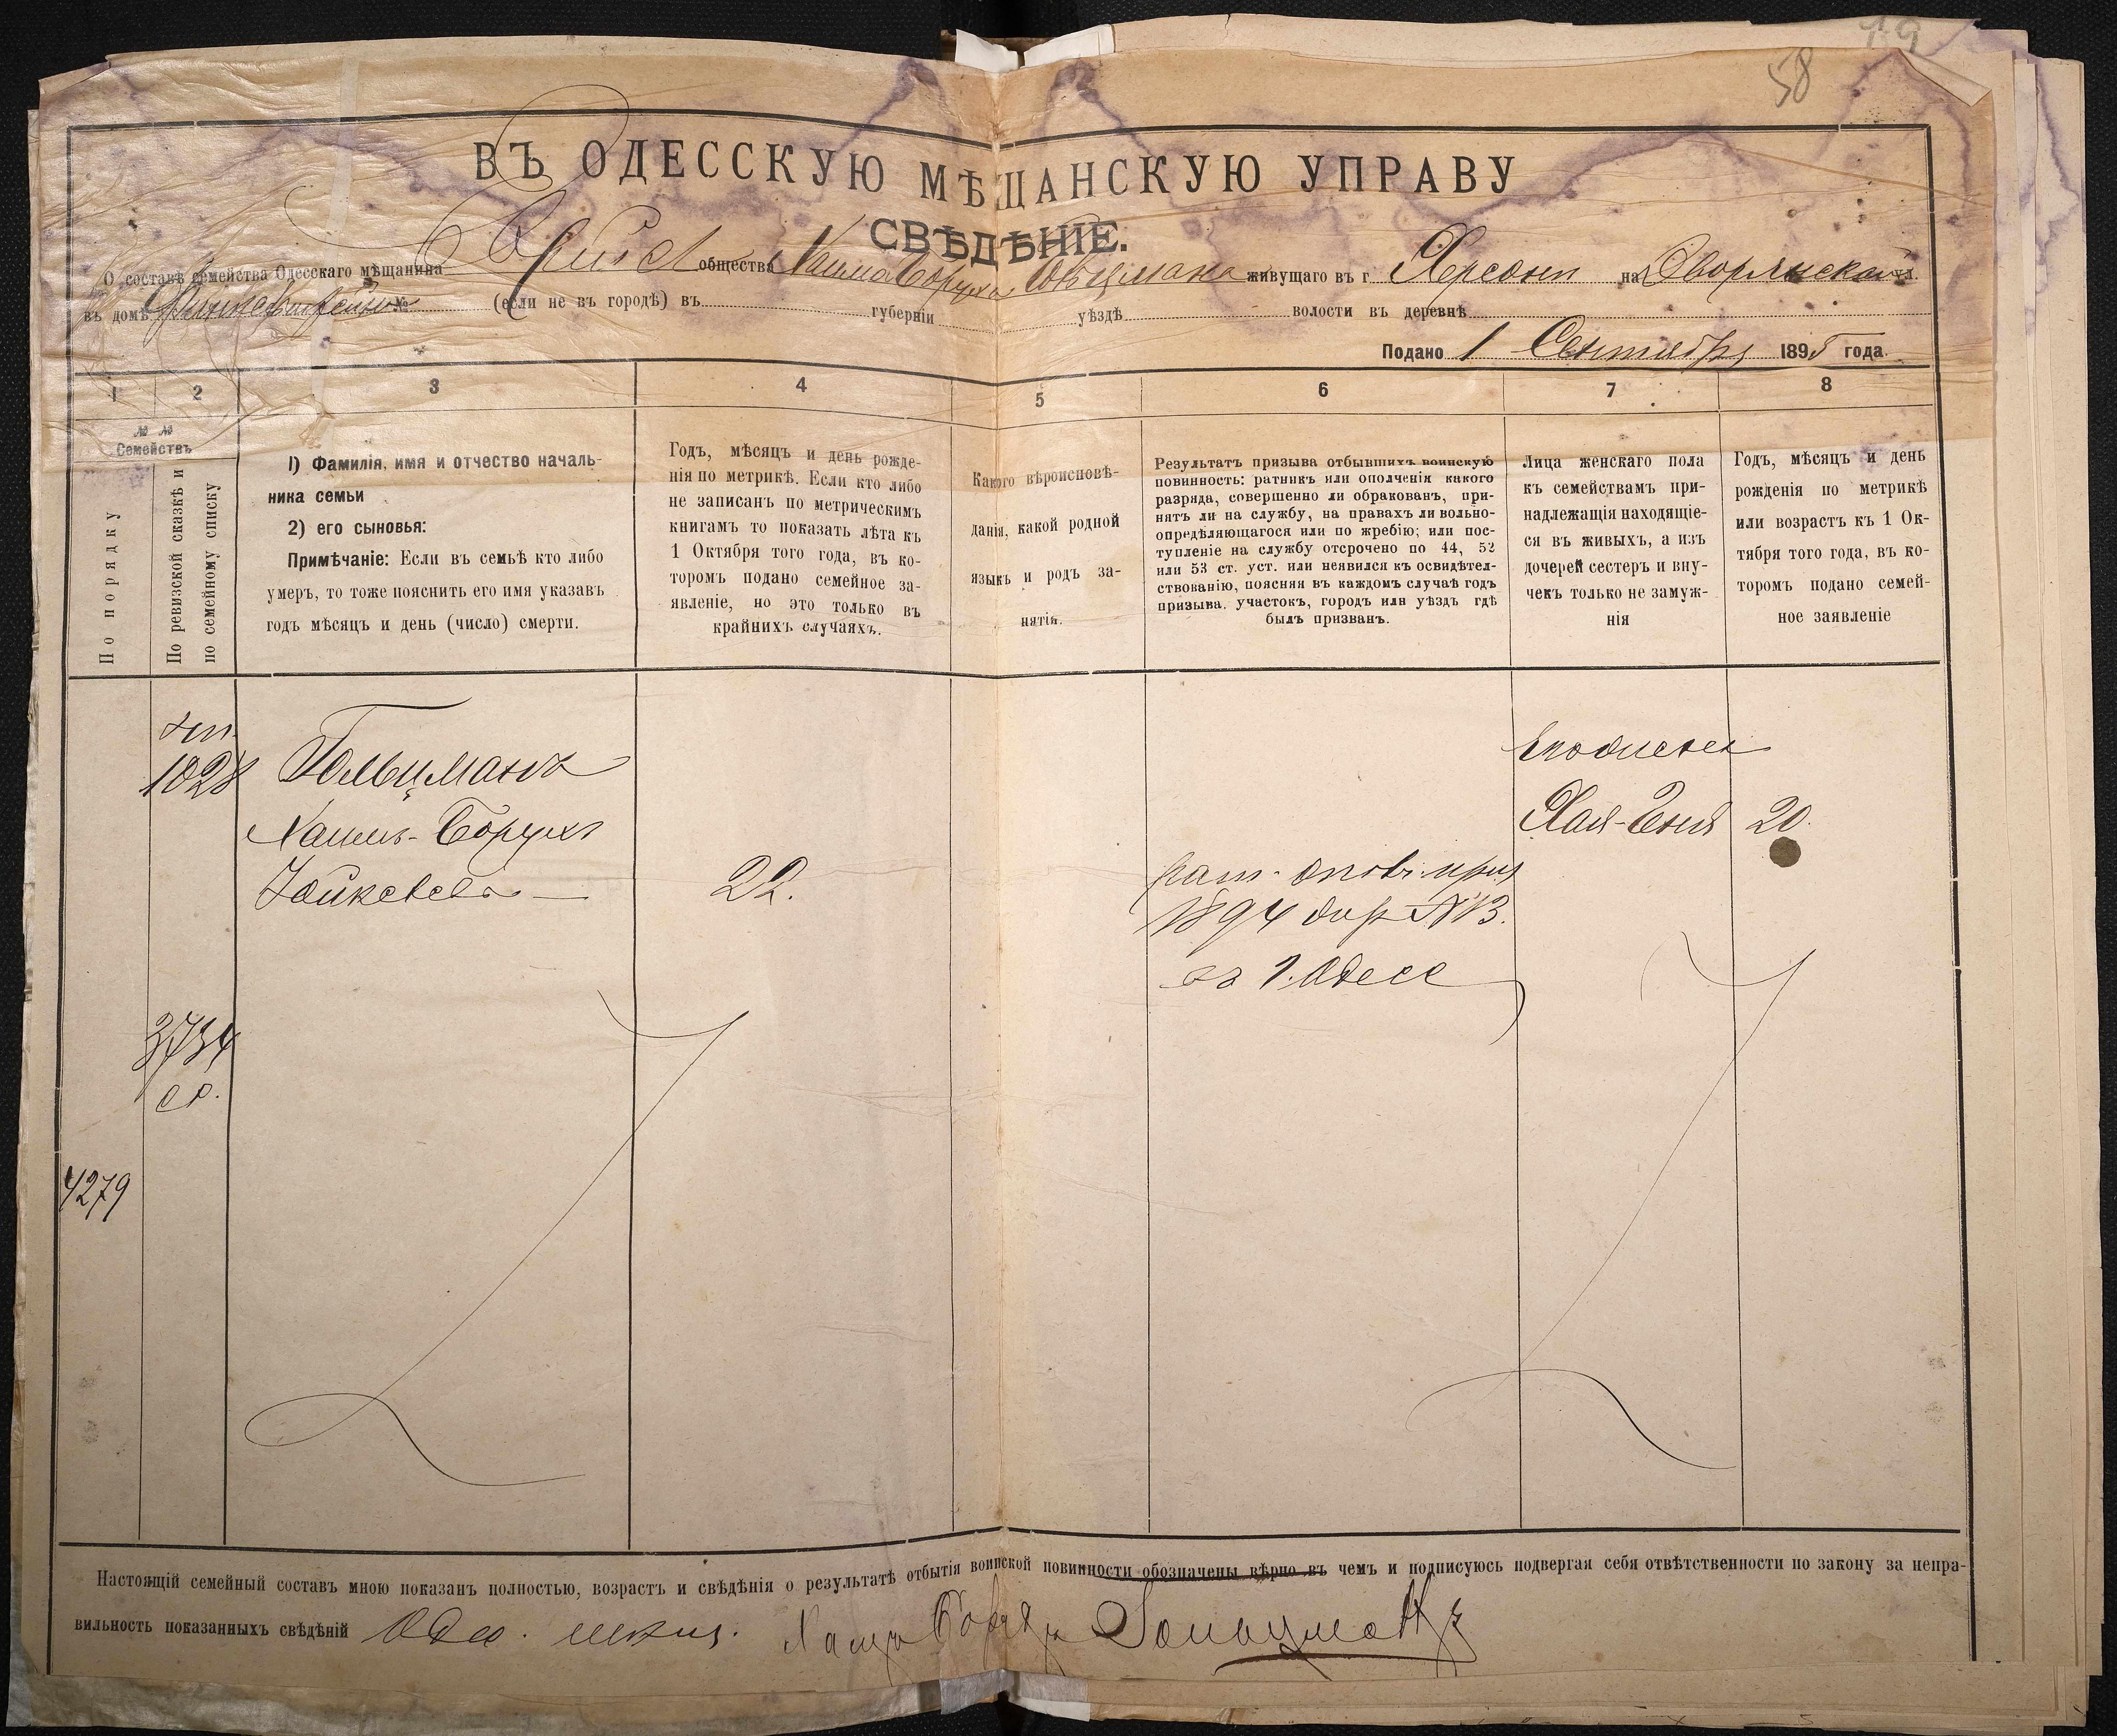 58
ВЪ ОДЕССКУЮ МѢЩАНСКУЮ УПРАВУ
СВѢДѢНІЕ.
О составѣ семейства Одесскаго мѣщанина общества живущаго въ г. Херсонѣ на Дворянской ул.
въ домѣ № (если не въ городѣ) въ губерніи уѣздѣ волости въ деревнѣ
Подано 1 Сентября 1895 года.
1 2 3 4 5 6 7 8
№ №
Семействъ
По порядку
По ревизской сказкѣ и
по семейному списку
1) Фамилія, имя и отчество началь-
ника семьи
2) его сыновья:
Примѣчаніе: Если въ семьѣ кто либо
умеръ, то тоже пояснить его имя указавъ
годъ мѣсяцъ и день (число) смерти.
Годъ, мѣсяцъ и день рожде-
нія по метрикѣ. Если кто либо
не записанъ по метрическимъ
книгамъ то показать лѣта къ
1 Октября того года, въ ко-
торомъ подано семейное за-
явленіе, но это только въ
крайнихъ случаяхъ.
Какого вѣроисповѣ-
данія, какой родной
языкъ и родъ за-
нятія.
Результатъ призыва отбывшихъ воинскую
повинность: ратникъ или ополченія какого
разряда, совершенно ли обракованъ, при-
нятъ ли на службу, на правахъ ли вольно-
опредѣляющагося или по жребію; или пос-
тупленіе на службу отсрочено по 44, 52
или 53 ст. уст. или неявился къ освидѣтел-
ствованію, поясняя въ каждомъ случаѣ годъ
призыва, участокъ, городъ или уѣздъ гдѣ
былъ призванъ.
Лица женскаго пола
къ семействамъ при-
надлежащія находящіе-
ся въ живыхъ, а изъ
дочерей сестеръ и вну-
чекъ только не замуж-
нія
Годъ, мѣсяцъ и день
рожденія по метрикѣ
или возрастъ къ 1 Ок-
тября того года, въ ко-
торомъ подано семей-
ное заявленіе
1028
Гольцманъ
Хаимъ-Борухъ
22.
1894
Хая-Еня 20.
3734
4279
Настоящій семейный составъ мною показанъ полностью, возрастъ и свѣдѣнія о результатѣ отбытія воинской повинности обозначены вѣрно въ чемъ и подписуюсь подвергая себя отвѣтственности по закону за непра-
вильность показанныхъ свѣдѣній